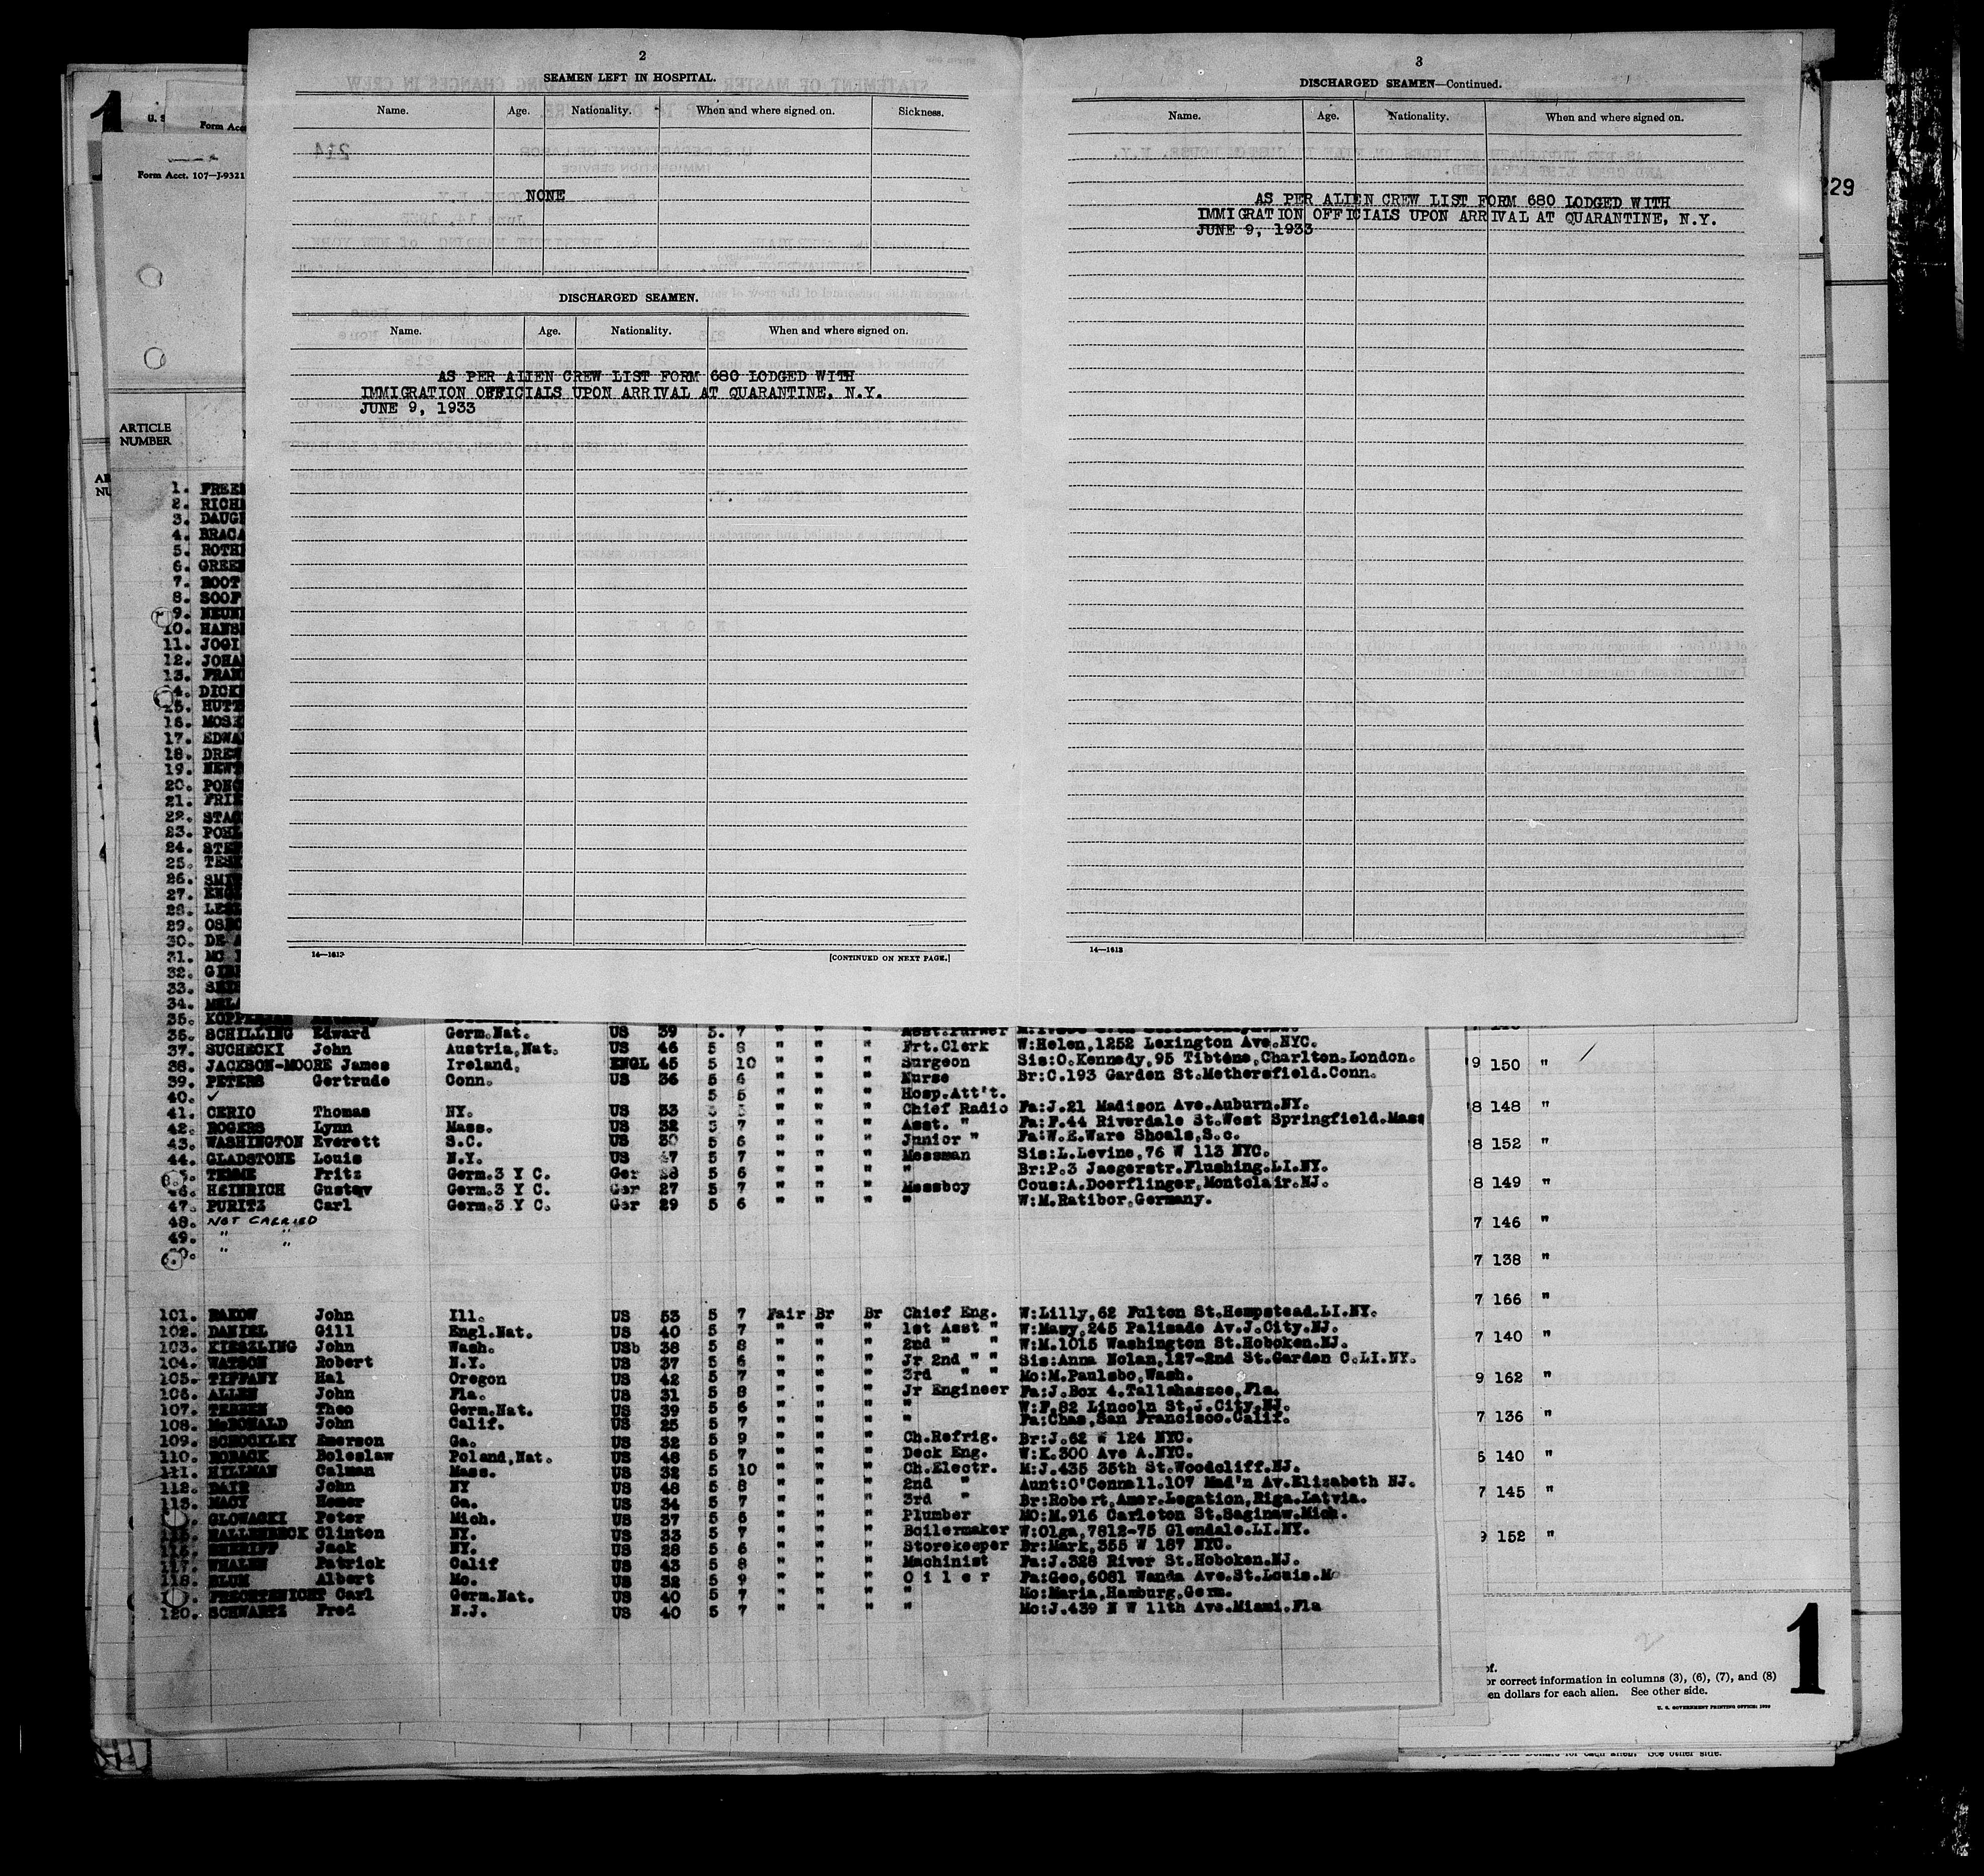 2
SEAMEN LEFT IN HOSPITAL.
Name. Age. Nationality. When and where signed on. Sickness.
NONE
DISCHARGED SEAMEN.
Name. Age. Nationality. When and where signed on.
AS PER ALIEN CREW LIST FORM 680 LODGED WITH
IMMIGRATION OFFICIALS UPON ARRIVAL AT QUARANTINE, N.Y.
JUNE 9, 1933
14—1613
[CONTINUED ON NEXT PAGE.]
3
DISCHARGED SEAMEN—Continued.
Name. Age. Nationality. When and where signed on.
AS PER ALIEN CREW LIST FORM 680 LODGED WITH
IMMIGRATION OFFICIALS UPON ARRIVAL AT QUARANTINE, N.Y.
JUNE 9, 1933
14—1613
1
Form Acct. 107—J-9321
ARTICLE
NUMBER
1. FREE
2. RICH
3. DAUG
4. BRACA
5. ROTH
6. GREE
7. ROOT
8. SOOF
9. NEUN
10. HANS
11. JOGI
12. JOHA
13. FRAN
14. DICK
15. HUTT
16. MOSE
17. EDWA
18. DREW
19. NEWT
20. PONG
21. FRIE
22. STAG
23. POHL
24. STEF
25. TESK
26. SMIT
27. ENGL
28. LESS
29. OSBO
30. DE A
31. MC
32. GIBB
33. SHIE
34. MELA
35.
36. SCHILLING Edward Germ.Nat. US 39 5. 7 " " " Asst.Purser
37. SUCHECKI John Austria,Nat. US 46 5 8 " " " Frt.Clerk W:Helen,1252 Lexington Ave.NYC.
38. JACKSON-MOORE James Ireland, ENGL 45 5 10 " " " Surgeon Sis:C.Kennedy,95 Tibtens,Charlton.London.
39. PETERS Gertrude Conn. US 36 5 6 " " " Nurse Br:C.193 Garden St.Methersfield.Conn.
40. ✓ 5 5 " " " Hosp.Att't.
41. CERIO Thomas NY. US 33 5 5 " " " Chief Radio Fa:J.21 Madison Ave.Auburn.NY.
42. ROGERS Lynn Mass. US 32 5 7 " " " Asst. " Fa:F.44 Riverdale St.West Springfield.Mass
43. WASHINGTON Everett S.C. US 30 5 6 " " " Junior " Fa:W.E.Ware Shoals,S.c.
44. GLADSTONE Louis N.Y. US 47 5 7 " " " Messman Sis:L.Levine,76 W 113 NYC.
45. TEMME Fritz Germ.3 Y C. Ger 28 5 6 " " " " Br:P.3 Jaegerstr.Flushing.LI.NY.
46. HEINRICH Gustav Germ.3 Y C. Ger 27 5 7 " " " Messboy Cous:A.Doerflinger,Montclair.NJ.
47. PURITZ Carl Germ.3 Y C. Ger 29 5 6 " " " " W:M.Ratibor,Germany.
48. NOT CARRIED
49. " "
50. " "
101. BAKOW John Ill. US 53 5 7 Fair Br Br Chief Eng. W:Lilly,62 Fulton St.Hempstead.LI.NY.
102. DANIEL Gill Engl.Nat. US 40 5 7 " " " 1st Asst " W:Mary,245 Palisade Av.J.City.NJ.
103. KIESZLING John Wash. USb 38 5 8 " " " 2nd " " W:M.1015 Washington St.Hoboken.NJ.
104. WATSON Robert N.Y. US 37 5 6 " " " Jr 2nd " " Sis:Anna Nolan,127-2nd St.Garden C.LI.NY.
105. TIFFANY Hal Oregon US 42 5 7 " " " 3rd " " Mo:M.Paulsbo,Wash.
106. ALLEN John Fla. US 31 5 8 " " " Jr Engineer Fa:J.Box 4.Tallahassee,Fla.
107. TERREN Theo Germ.Nat. US 39 5 6 " " " " W:F.82 Lincoln St.J.City.NJ.
108. McDONALD John Calif. US 25 5 7 " " " " Fa:Chas,San Francisco.Calif.
109. SCHOCKLEY Emerson Ga. US 32 5 9 " " " Ch.Refrig. Br:J.62 W 124 NYC.
110. NOBACK Boleslaw Poland,Nat. US 48 5 7 " " " Deck Eng. W:K.300 Ave A.NYC.
111. HILLMAN Calman Mass. US 32 5 10 " " " Ch.Electr. M:J.435 35th St.Woodcliff.NJ.
112. DAIR John NY US 48 5 8 " " " 2nd " Aunt:O'Connall.107 Mad'n Av.Elizabeth NJ.
113. MACY Homer Ga. US 34 5 7 " " " 3rd " Br:Robert,Amer.Legation,Riga.Latvia.
GLOWACKI Peter Mich. US 37 5 6 " " " Plumber MO:M.916 Carleton St.Saginaw.Mich.
115. HALLENBECK Clinton NY. US 33 5 7 " " " Boilermaker W:Olga,7812-75 Glendale.LI.NY.
116. SHERIFF Jack NY. US 28 5 6 " " " Storekeeper Br:Mark,355 W 187 NYC.
117. WHALEN Patrick Calif US 43 5 8 " " " Machinist Fa:J.328 River St.Hoboken.NJ.
118. BLUM Albert Mo. US 32 5 9 " " " O i l e r Fa:Geo,6081 Wanda Ave.St.Louis.Mo
FRECHTENICHT Carl Germ.Nat. US 40 5 7 " " " " Mo:Maria,Hamburg,Germ.
120. SCHWARTZ Fred N.J. US 40 5 7 " " " " Mo:J.439 N W 11th Ave.Miami.Fla
229
9 150 "
8 148 "
8 152 "
8 149 "
7 146 "
7 138 "
7 166 "
7 140 "
9 162 "
7 136 "
6 140 "
7 145 "
9 152 "
of.
or correct information in columns (3), (6), (7), and (8)
en dollars for each alien. See other side.
U. S. GOVERNMENT PRINTING OFFICE: 1930
1
See other side.